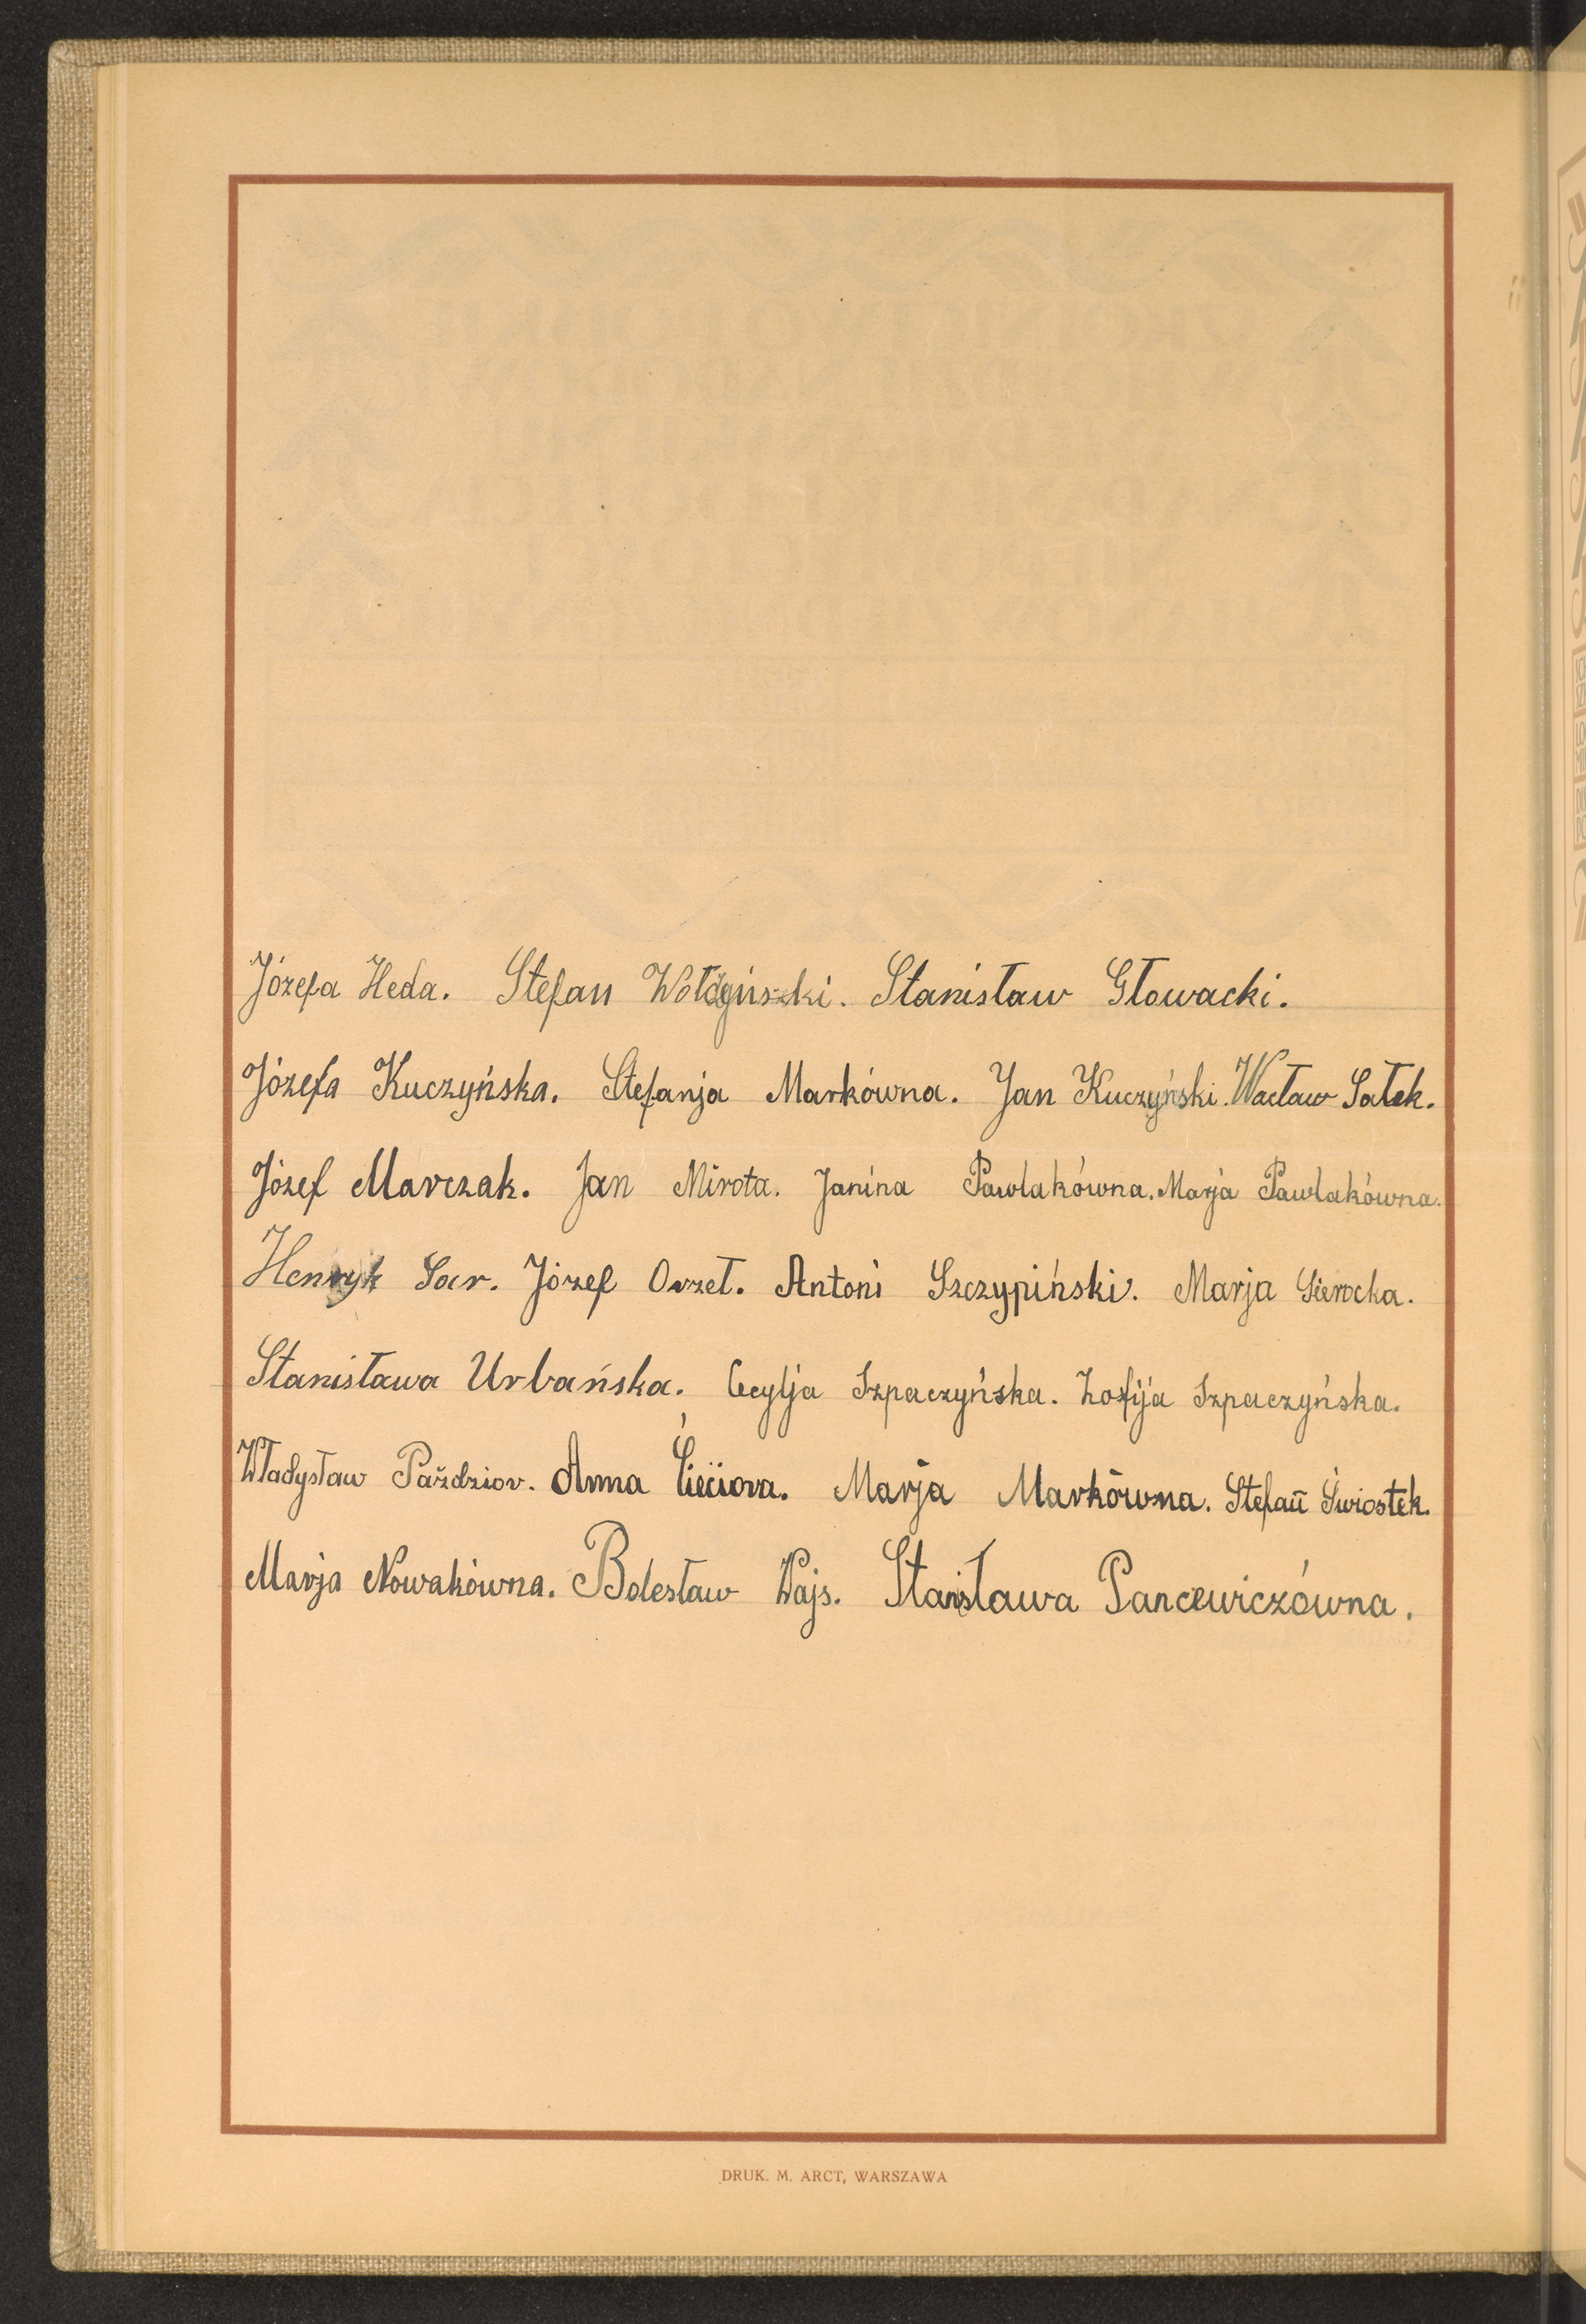 Józefa Heda. Stefan Wołogiński. Stanisław Głowacki.
Józefa Kuczyńska. Stefanja Markówna. Jan Kuczyński. Wacław Sałek.
Józef Marczak. Jan Mirota. Janina Pawlakówna. Marja Pawlakówna.
Henryk Sar. Józef Orzeł. Antoni Szczypiński. Marja Sierocka.
Stanisława Urbańska. Cecylja Szpaczyńska. Zofija Szpaczyńska.
Władysław Paździor. Anna Marja Markówna. Stefan Świostek.
Marja Nowakówna. Bolesław Wajs. Stanisława Pancewiczówna.
DRUK. M. ARCT, WARSZAWA